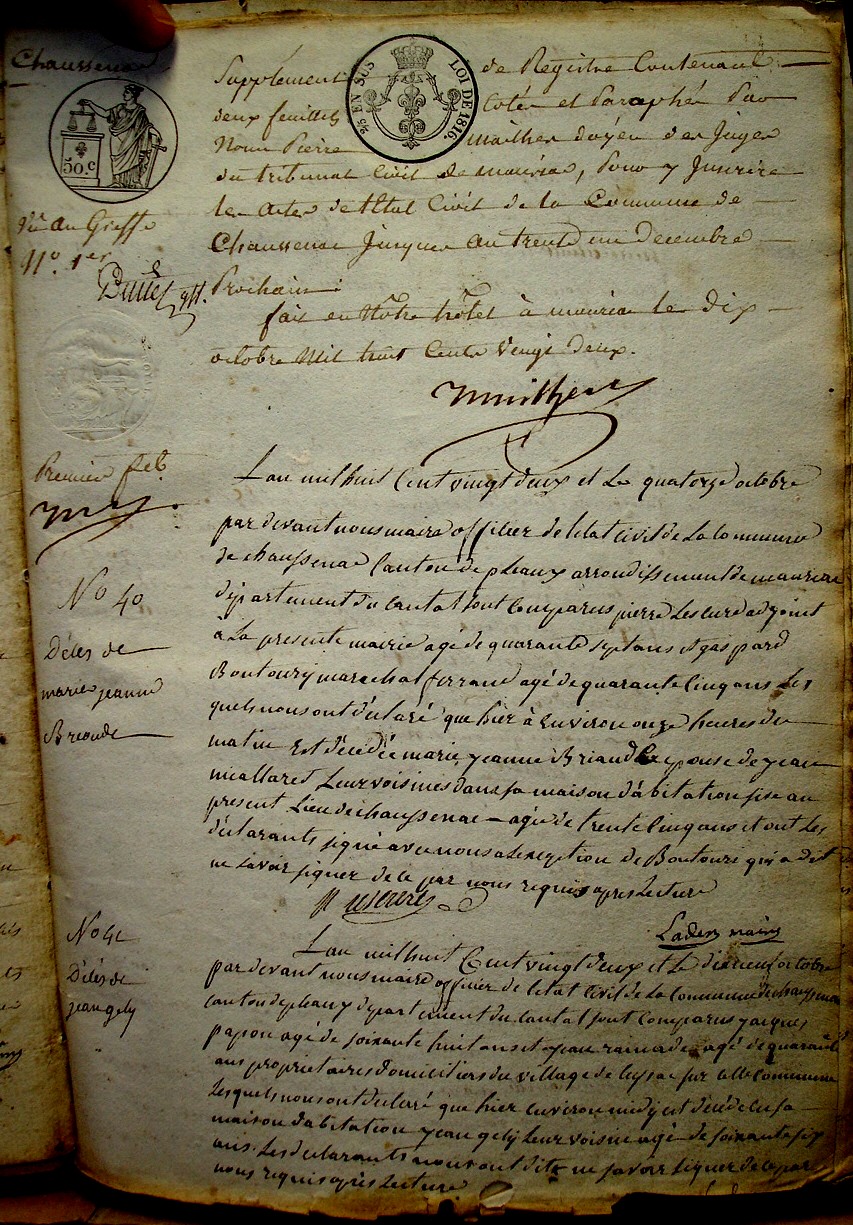 Chaussenac
Supplement de Registre Contenant
deux feuillets Coté et Paraphé Par
Nous Pierre Mailhes doyen des Juges
du tribunal Civil de mauriac, Pour y Inscrire
les Actes de l'Etat Civil de la Commune de
Chaussenac Jusques au trente un decembre
Prochain
25 EN SUS LOI DE 1816.
50.C
Vu au Greffe
N.o 1er
fait en Nôtre hôtel à mauriac le dix
octobre Mil huit Cents Vingt deux.
Premier fet.
L'an mil huit Cent vingt deux et Le quatorze octobre
par devant nous maire officier de létat civil de La Commune
de chaussenac Canton de pleaux arrondissement de mauriac
département du Cantal sont Comparus pierre Lescure adjoint
à La presente mairie agé de quarante sept ans et gaspard
Boutoury marechal ferrand agé de quarante Cinq ans Les
quels nous ont déclaré que hier à Environ onze heures du
matin Est décédée marie jeanne Briande epouse de jean
Leur voisine dans sa maison d'abitation sise au
present Lieu de chaussenac agée de trente Cinq ans et ont Les
déclarants signé avec nous a Lexception de Boutouri qui a dit
ne savoir signer de ce par nous requis apres Lecture
No 40
Décès de
marie jeanne
Briande
No 41
Décès de
jean gely
L'an mil huit Cent vingt deux et Le dixneuf octobre
par devant nous maire officier de létat Civil de La Commune de chaussenac
canton de pleaux departement du Cantal sont Comparus jacques
papon agé de soixante huit ans et jean rainade agé de quarante
ans propriétaires domiciliers du village de sur cette Commune
Lesquels nous ont declaré que hier environ midy est décédé en sa
maison d'abitation jean gely Leur voisin agé de soixante six
ans. Les declarants nous ont dits ne savoir signer de ce par
nous requis après Lecture